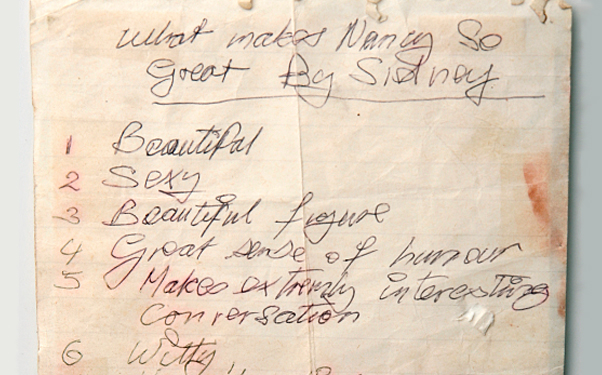 what makes Nancy So
Great By Sidney
1 Beautiful
2 Sexy
3 Beautiful figure
4 Great sense of humour
5 Makes extremly interesting
conversation
6 Witty